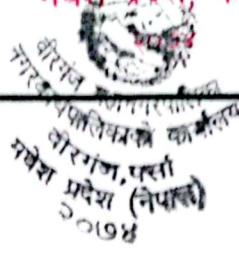 वीरगंज महानगरपालिका
नगर कार्यपालिकाको कार्यालय
वीरगंज, पर्सा
मधेश प्रदेश (नेपाल)
२०७४